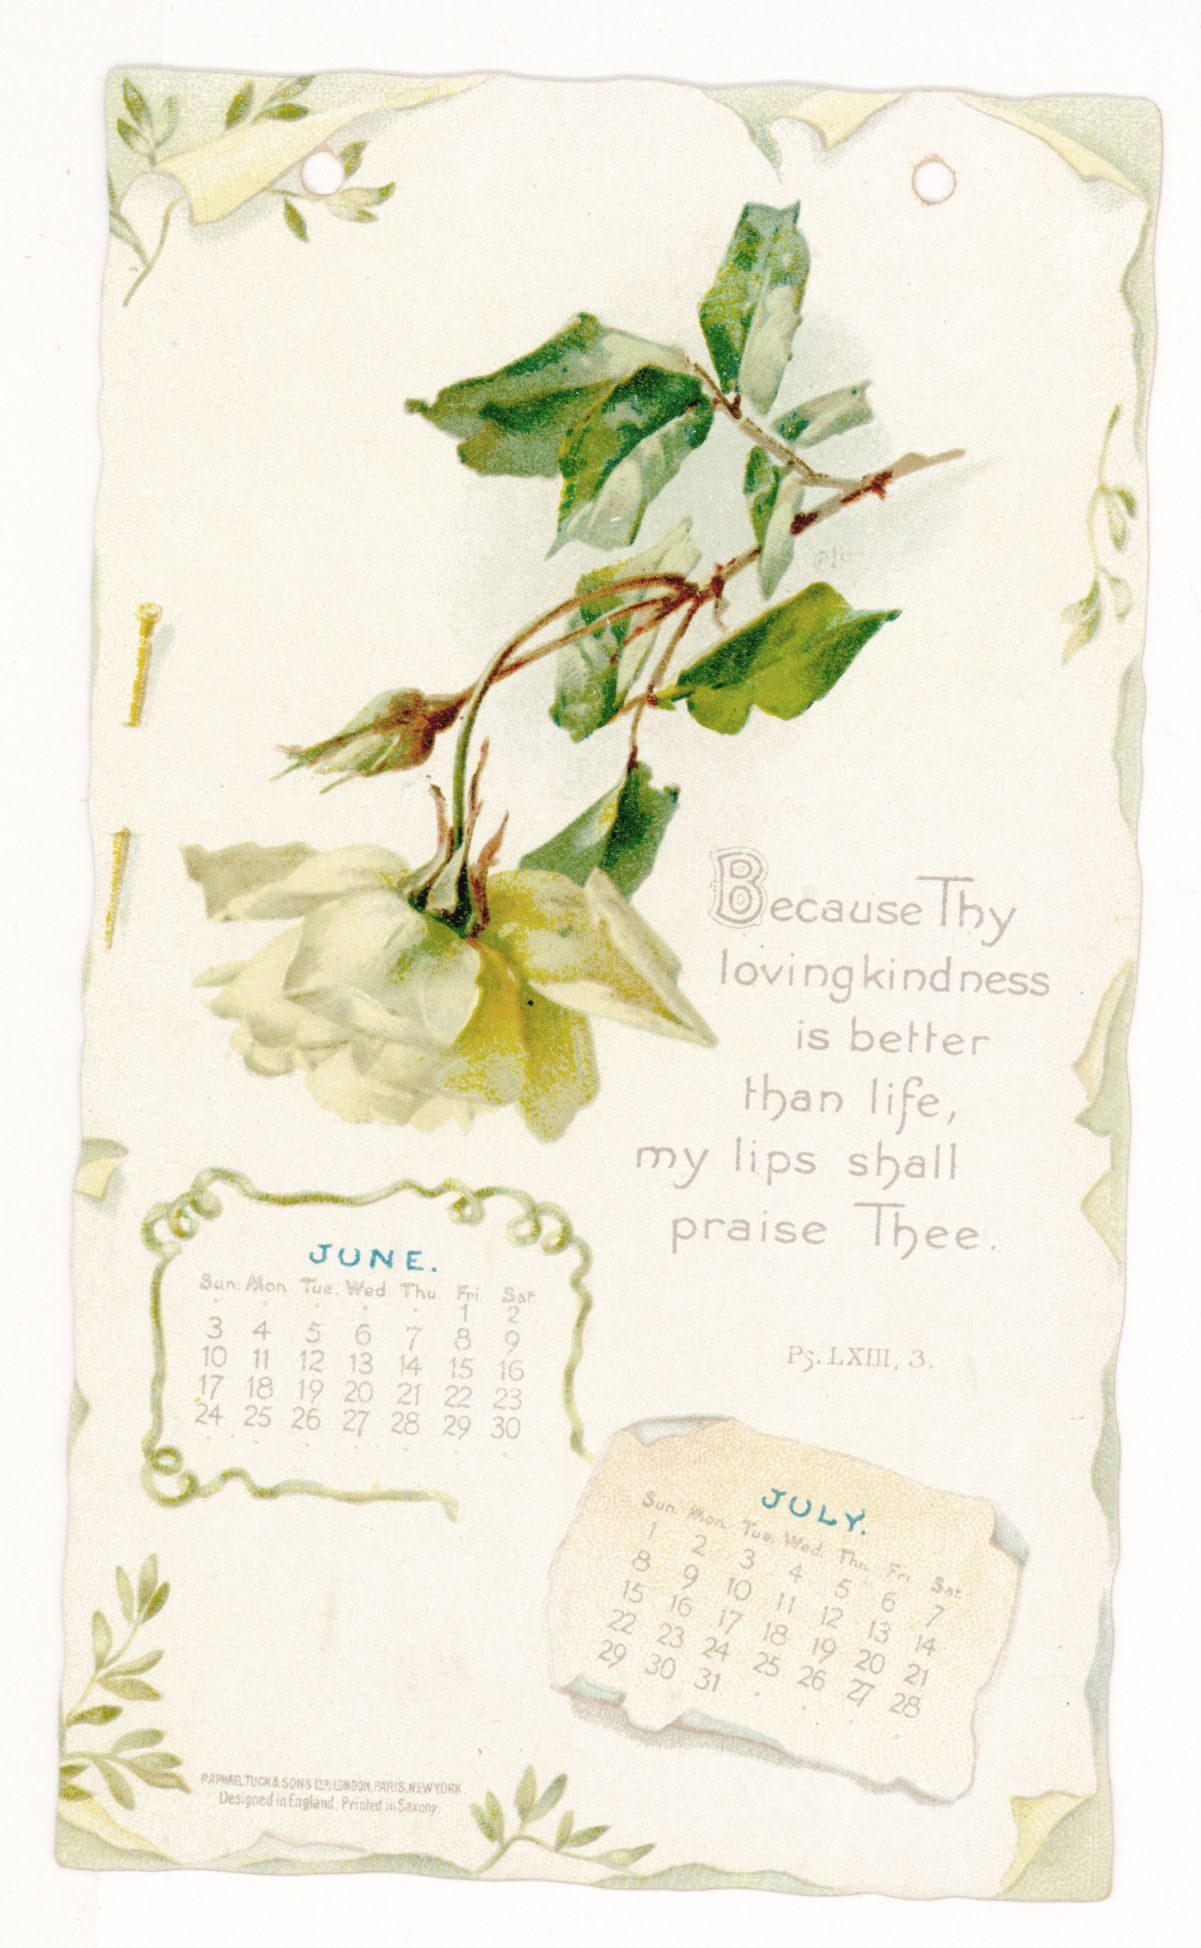 Because Thy
lovingkindness
is better
than life,
my lips shall
praise Thee.
Ps. LXIII, 3.
JUNE.
Sun. Mon. Tue. Wed. Thu. Fri. Sat.
1 2
3 4 5 6 7 8 9
10 11 12 13 14 15 16
17 18 19 20 21 22 23
24 25 26 27 28 29 30
JULY.
Sun. Mon. Tue. Wed. Thu. Fri. Sat.
1 2 3 4 5 6 7
8 9 10 11 12 13 14
15 16 17 18 19 20 21
22 23 24 25 26 27 28
29 30 31
RAPHAEL TUCK & SONS LTD, LONDON, PARIS, NEW YORK.
Designed in England, Printed in Saxony.